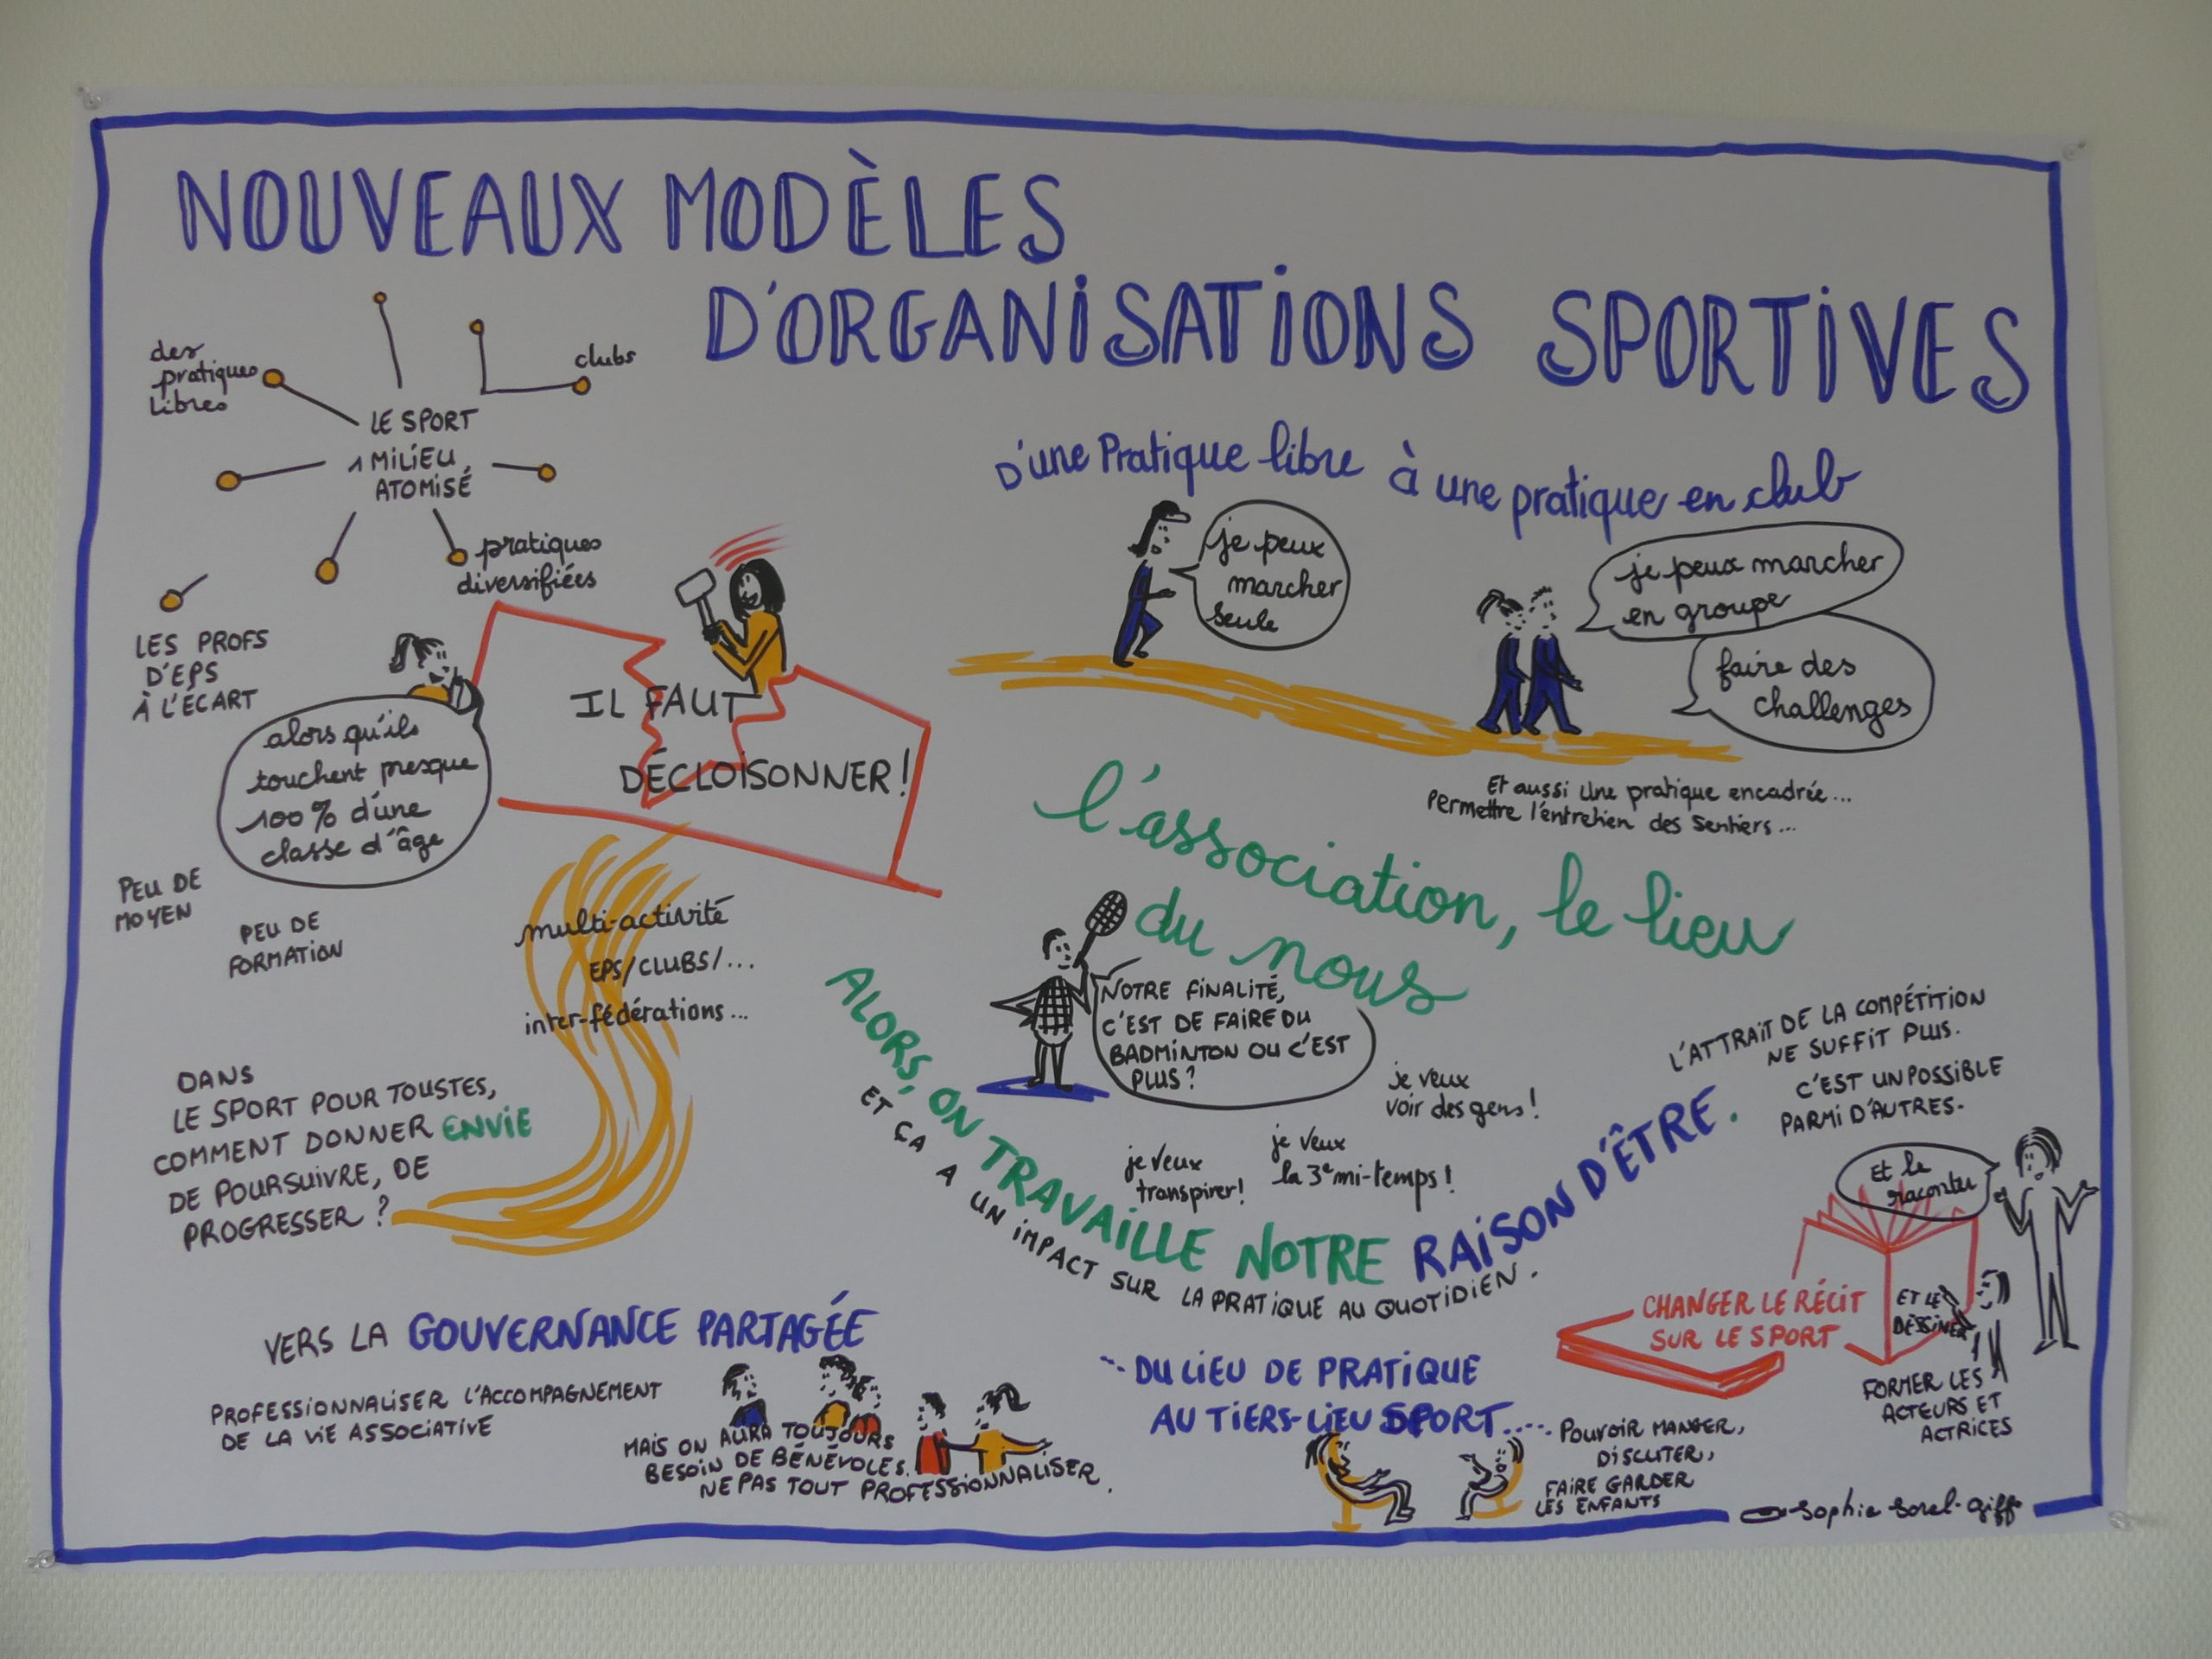 NOUVEAUX MODÈLES
D'ORGANISATIONS SPORTIVES
des
pratiques
libres
clubs
LE SPORT
1 MILIEU
ATOMISÉ
pratiques
diversifiées
LES PROFS
D'EPS
À L'ÉCART
alors qu'ils
touchent presque
100% d'une
classe d'âge
PEU DE
MOYEN
PEU DE
FORMATION
IL FAUT
DÉCLOISONNER!
multi-activité
EPS/CLUBS/...
inter-fédérations...
DANS
LE SPORT POUR TOUSTES,
COMMENT DONNER ENVIE
DE POURSUIVRE, DE
PROGRESSER ?
D'une Pratique libre à une pratique en club
je peux
marcher
seule
je peux marcher
en groupe
faire des
challenges
Et aussi Une pratique encadrée...
Permettre l'entretien des Sentiers...
l'association, le lieu
du nous
NOTRE FINALITÉ,
C'EST DE FAIRE DU
BADMINTON OU C'EST
PLUS ?
je veux
voir des gens!
je veux
transpirer!
je veux
la 3e mi-temps!
ALORS, ON TRAVAILLE NOTRE RAISON D'ÊTRE.
ET ÇA A UN IMPACT SUR LA PRATIQUE AU QUOTIDIEN.
L'ATTRAIT DE LA COMPÉTITION
NE SUFFIT PLUS.
C'EST UN POSSIBLE
PARMI D'AUTRES.
Et le
raconter
CHANGER LE RÉCIT
SUR LE SPORT
ET LE
DESSINER
FORMER LES
ACTEURS ET
ACTRICES
VERS LA GOUVERNANCE PARTAGÉE
PROFESSIONNALISER L'ACCOMPAGNEMENT
DE LA VIE ASSOCIATIVE
MAIS ON AURA TOUJOURS
BESOIN DE BÉNÉVOLES.
NE PAS TOUT PROFESSIONNALISER.
DU LIEU DE PRATIQUE
AU TIERS-LIEU SPORT....
POUVOIR MANGER,
DISCUTER,
FAIRE GARDER
LES ENFANTS
Sophie Sorel-Giffo